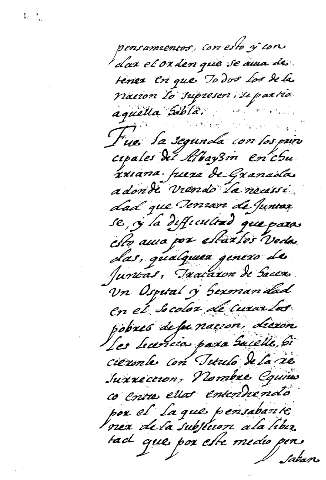 pensamientos, con esto y con
dar el orden que se auia de
tener en que Todos los de la
nacion lo supiesen, se partio
aquella habla.
Fue la segunda con los prin
cipales del Albayzin en Chu
rriana fuera de Granada
adonde viendo la necessi
dad que Tenian de Juntar
se, y la difficultad que para
esto auia por estarles Veda
das, qualquier genero de
Juntas, Trataron de hacer
Un Ospital y hermandad
en el so color de Curar los
pobres de su nacion, dieron
les licencia para hacelle, hi
cieronle con Titulo de la re
surreccion, Nombre equiuo
co entre ellos entendiendo
por el la que pensaban te
ner de la subjecion a la liber
tad que por este medio pen
saban